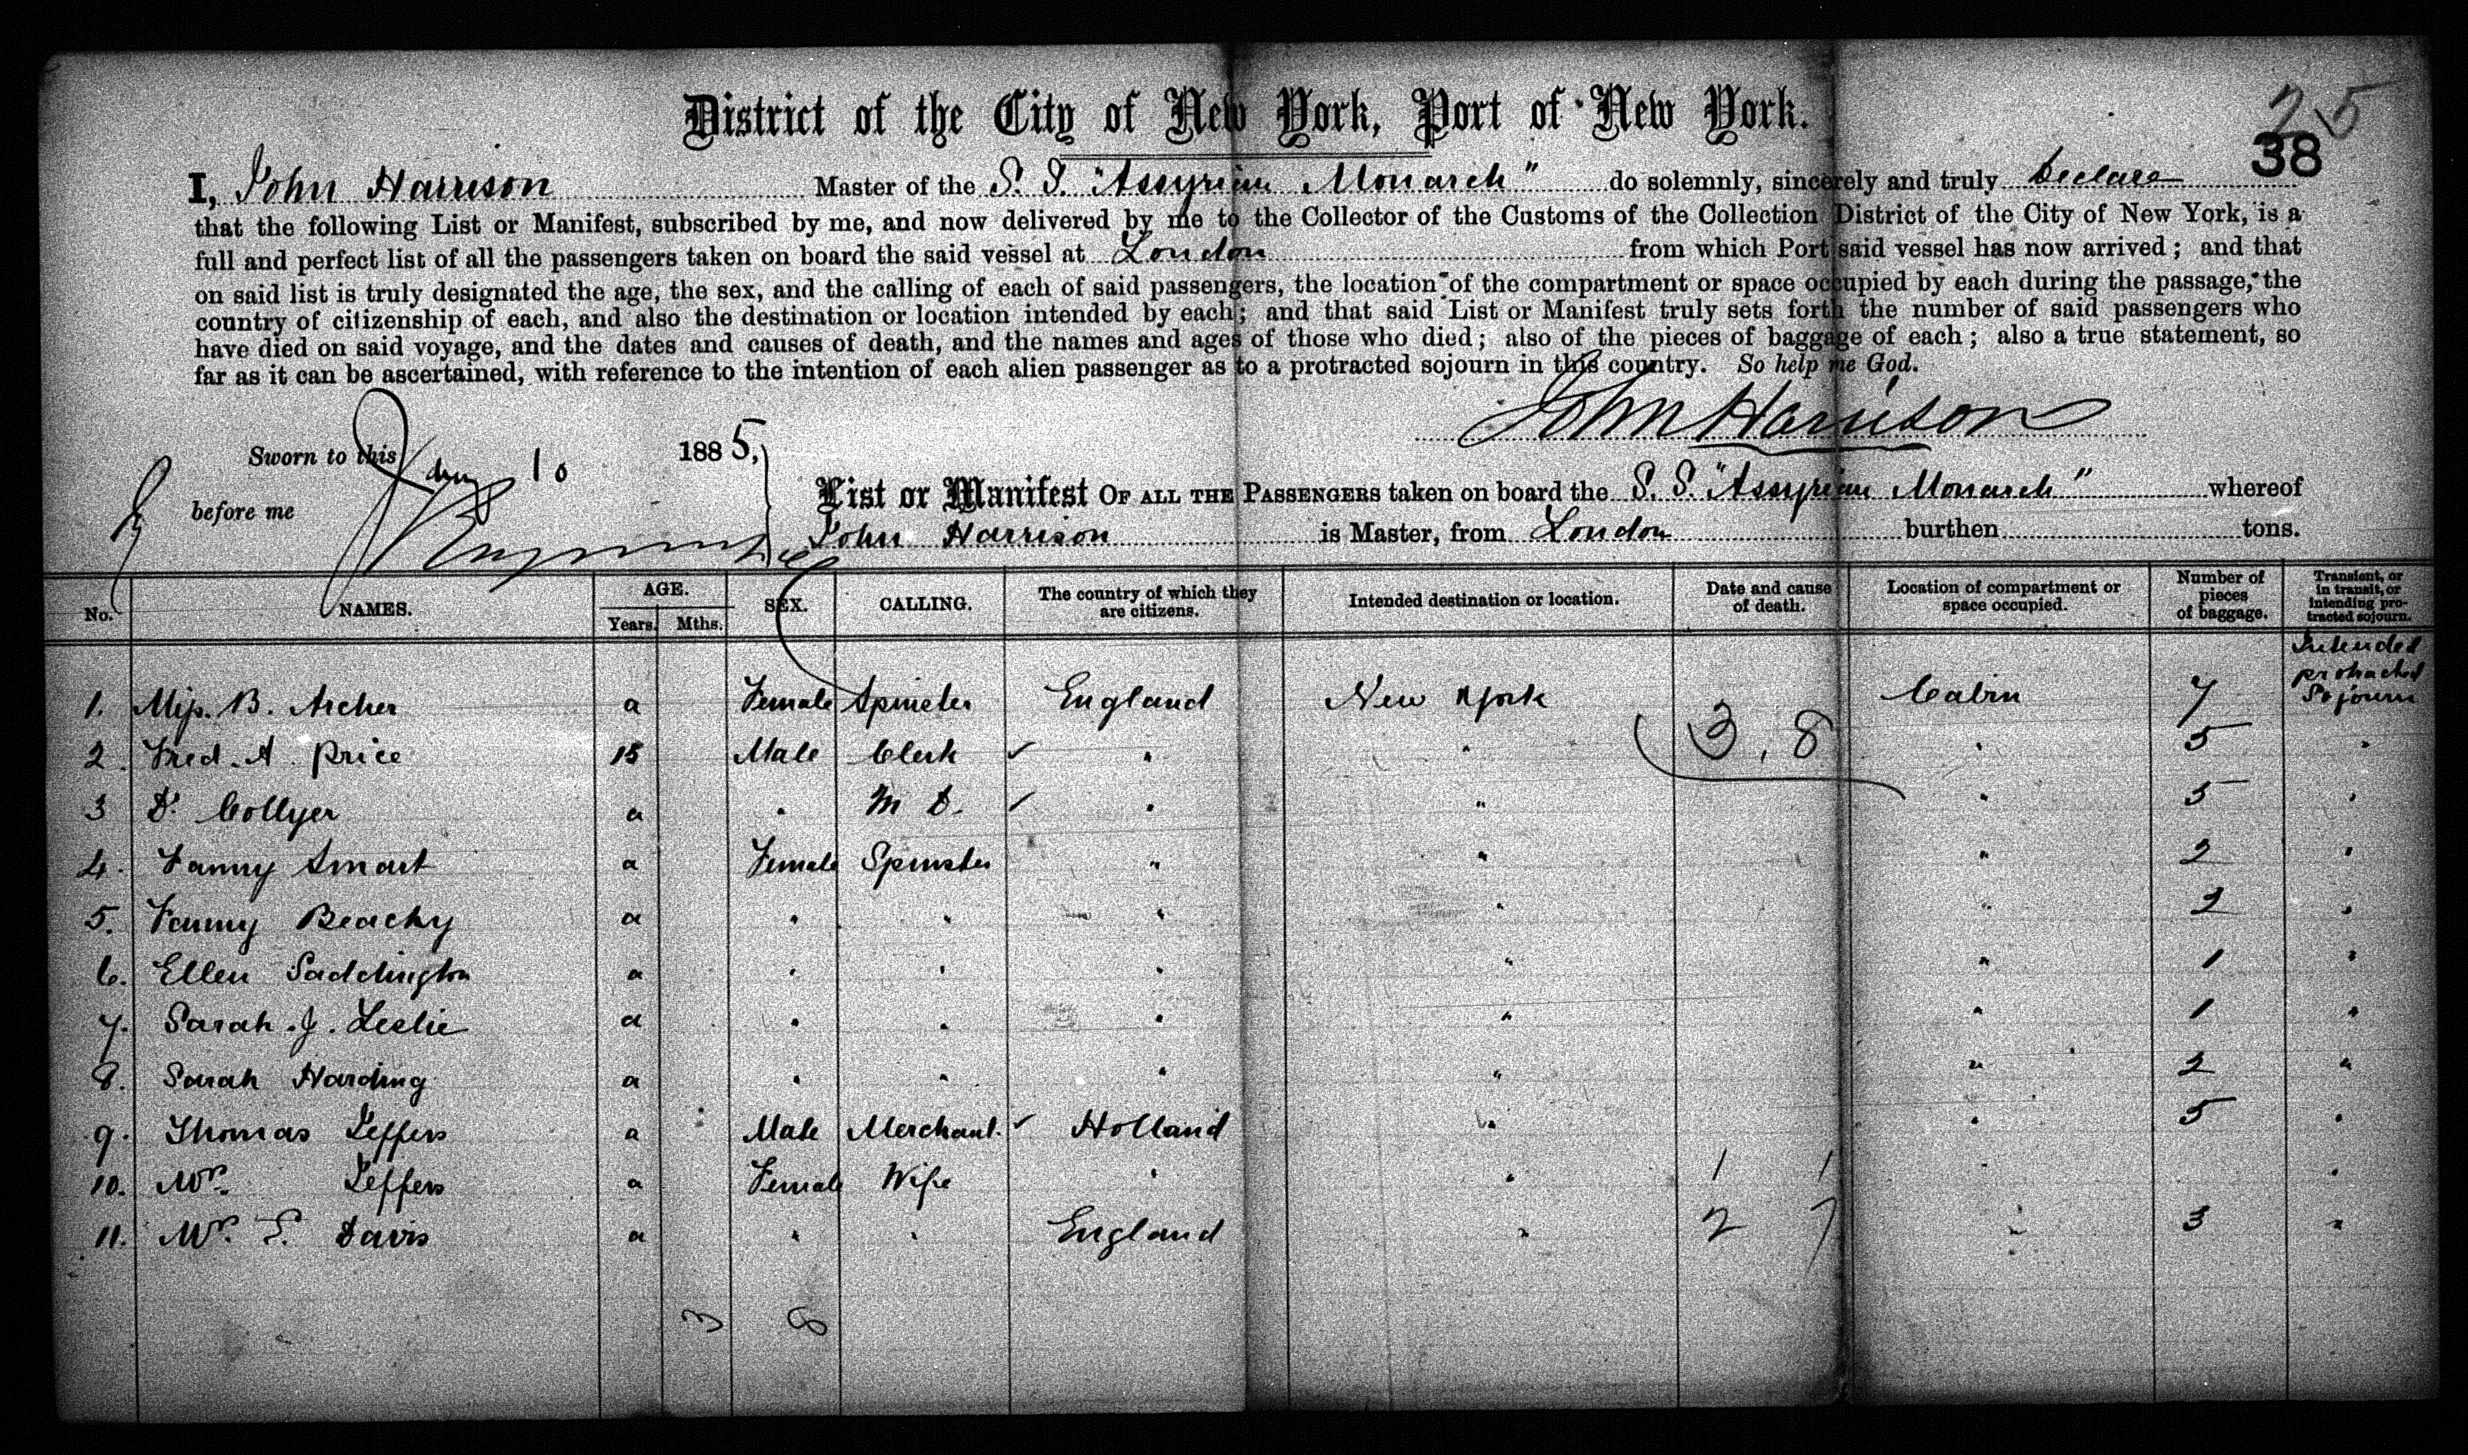 District of the City of New York, Port of New York.
25
38
I, John Harrison Master of the S. S. "Assyrian Monarch" do solemnly, sincerely and truly declare
that the following List or Manifest, subscribed by me, and now delivered by me to the Collector of the Customs of the Collection District of the City of New York, is a
full and perfect list of all the passengers taken on board the said vessel at London from which Port said vessel has now arrived; and that
on said list is truly designated the age, the sex, and the calling of each of said passengers, the location of the compartment or space occupied by each during the passage, the
country of citizenship of each, and also the destination or location intended by each; and that said List or Manifest truly sets forth the number of said passengers who
have died on said voyage, and the dates and causes of death, and the names and ages of those who died; also of the pieces of baggage of each; also a true statement, so
far as it can be ascertained, with reference to the intention of each alien passenger as to a protracted sojourn in this country. So help me God.
John Harrison
Sworn to this Jany 10 1885,
before me
List or Manifest OF ALL THE PASSENGERS taken on board the S. S. "Assyrian Monarch" whereof
John Harrison is Master, from London burthen tons.
No. NAMES. AGE. Years. Mths. SEX. CALLING. The country of which they are citizens. Intended destination or location. Date and cause of death. Location of compartment or space occupied. Number of pieces of baggage. Transient, or in transit, or intending protracted sojourn.
1. Miss. B. Archer a Female Spinster England New York Cabin 7 Intended protracted Sojourn
2. Fred. A. Price 15 Male Clerk ✓ " " 3,8 " 5 "
3 Dr. Collyer a " M D. ✓ " " " 5 "
4. Fanny Smart a Female Spinster " " " 2 "
5. Fanny Beachy a " " " " " 2 "
6. Ellen Saddington a " " " " " 1 "
7. Sarah. J. Leslie a " " " " " 1 "
8. Sarah Harding a " " " " " 2 "
9. Thomas Jeffers a Male Merchant. ✓ Holland " " 5 "
10. Mrs. Jeffers a Female Wife " " 1 1 " "
11. Mrs. E. Davis a " " England " 2 7 " 3 "
3 8